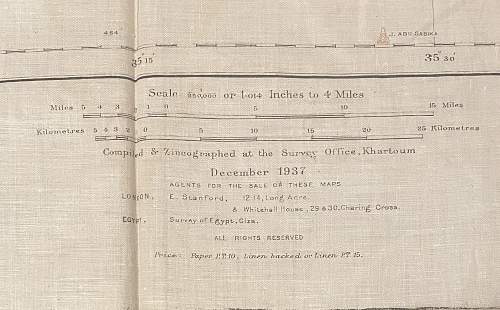 464
J. ABU GABIKA
35° 15'
35° 30'
Scale 1/250,000 or 1·014 Inches to 4 Miles
Miles 5 4 3 2 1 0 5 10 15 Miles
Kilometres 5 4 3 2 0 5 10 15 20 25 Kilometres
Compiled & Zincographed at the Survey Office, Khartoum
December 1937
AGENTS FOR THE SALE OF THESE MAPS
LONDON. E. Stanford, 12-14, Long Acre
& Whitehall House, 29 & 30, Charing Cross.
EGYPT. Survey of Egypt, Giza.
ALL RIGHTS RESERVED
Price: Paper P.T. 10, Linen backed or Linen P.T. 15.